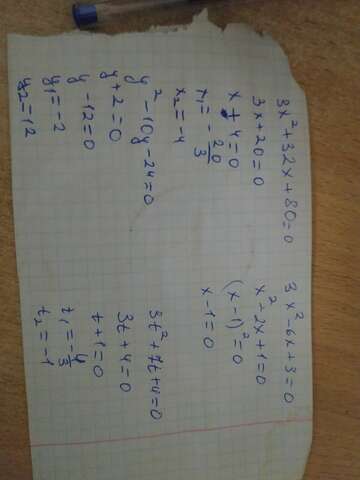 3x² + 32x + 80 = 0
3x + 20 = 0
x + 4 = 0
x₁ = - 20/3
x₂ = -4
y² - 10y - 24 = 0
y + 2 = 0
y - 12 = 0
y₁ = -2
y₂ = 12
3x² - 6x + 3 = 0
x² + 2x + 1 = 0
(x - 1)² = 0
x - 1 = 0
3t² + 7t + 4 = 0
3t + 4 = 0
t + 1 = 0
t₁ = - 4/3
t₂ = -1